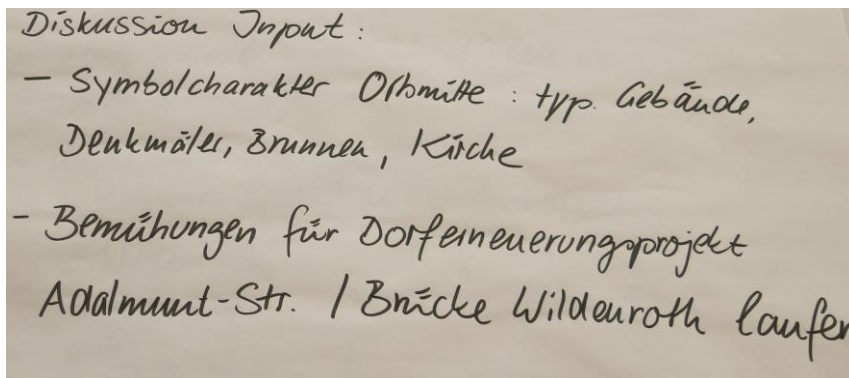 Diskussion Input:
- Symbolcharakter Ortsmitte: typ. Gebäude,
Denkmäler, Brunnen, Kirche
- Bemühungen für Dorferneuerungsprojekt
Adalmunt-Str. / Brücke Wildenroth laufen